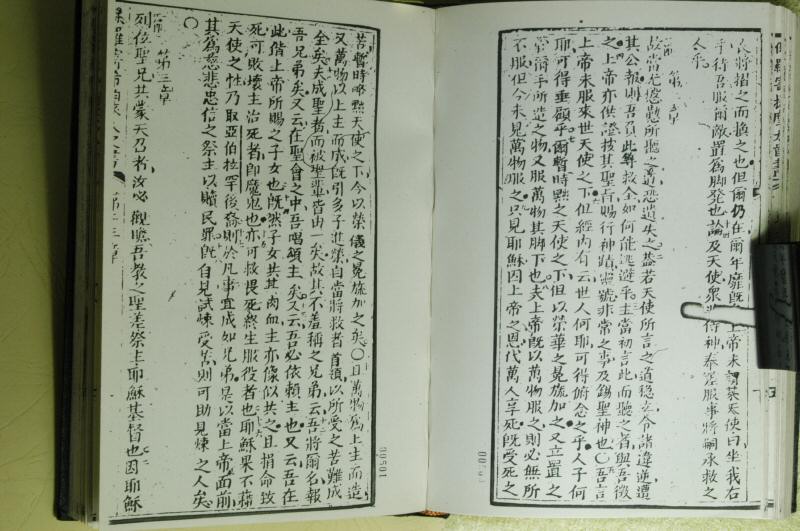 衣將摺之而換之也但爾仍在爾年靡旣上帝未嘗英天使曰坐我右
手待吾服爾敵置為脚発也論及天使眾皆特神奉差服事將嗣承救之
人乎
第二章
故當尤慇懃所聽之道恐遺失之蓋若天使所言之道穩立令諸違逆遭
其公報則吾負此等救全如何能逃避乎主當初言此而聽之者與吾徵
之上帝亦供證按其聖旨賜行神蹟靈號非常之事及錫聖神也〇吾言
上帝未服來世天使之下但經內有云世人何耶可得俯念之乎人子何
耶可得垂顧乎爾暫時㸃之天使之下但以榮華之冕旒加之又立置之
爾手所造之物又服萬物其脚下也夫上帝旣以萬物服之則必無所
不服但今未見萬物服之只見耶穌因上帝之恩代萬人享死旣受死之
苦暫時略㸃天使之下今以榮儀之冕旒加之矣〇且萬物爲上主而造
又萬物以上主而成旣引多子進榮自當將救者首領以所受之苦難成
全矣夫成聖者而被聖輩皆由一矣故其不羞稱之兄弟云吾將爾名報
吾兄弟矣又云在聖會之中吾唱頌主矣又云吾必依賴主也又云吾在
此偕上帝所賜之子女也旣然子女共其肉血主亦像似共之且捐命致
死可敗壞主治死者卽魔鬼也亦可救畏死終生服役者也耶穌果不藉
天使之性乃取亞伯拉罕後裔則於凡事宜成如兄弟是以當上帝面前
其為慈悲忠信之祭主以贖民罪旣自見試煉受苦則可助見煉之人矣
〇
第三章
列位聖兄共蒙天召者汝必觀瞻吾教之聖差祭主耶穌基督也因耶穌
00501